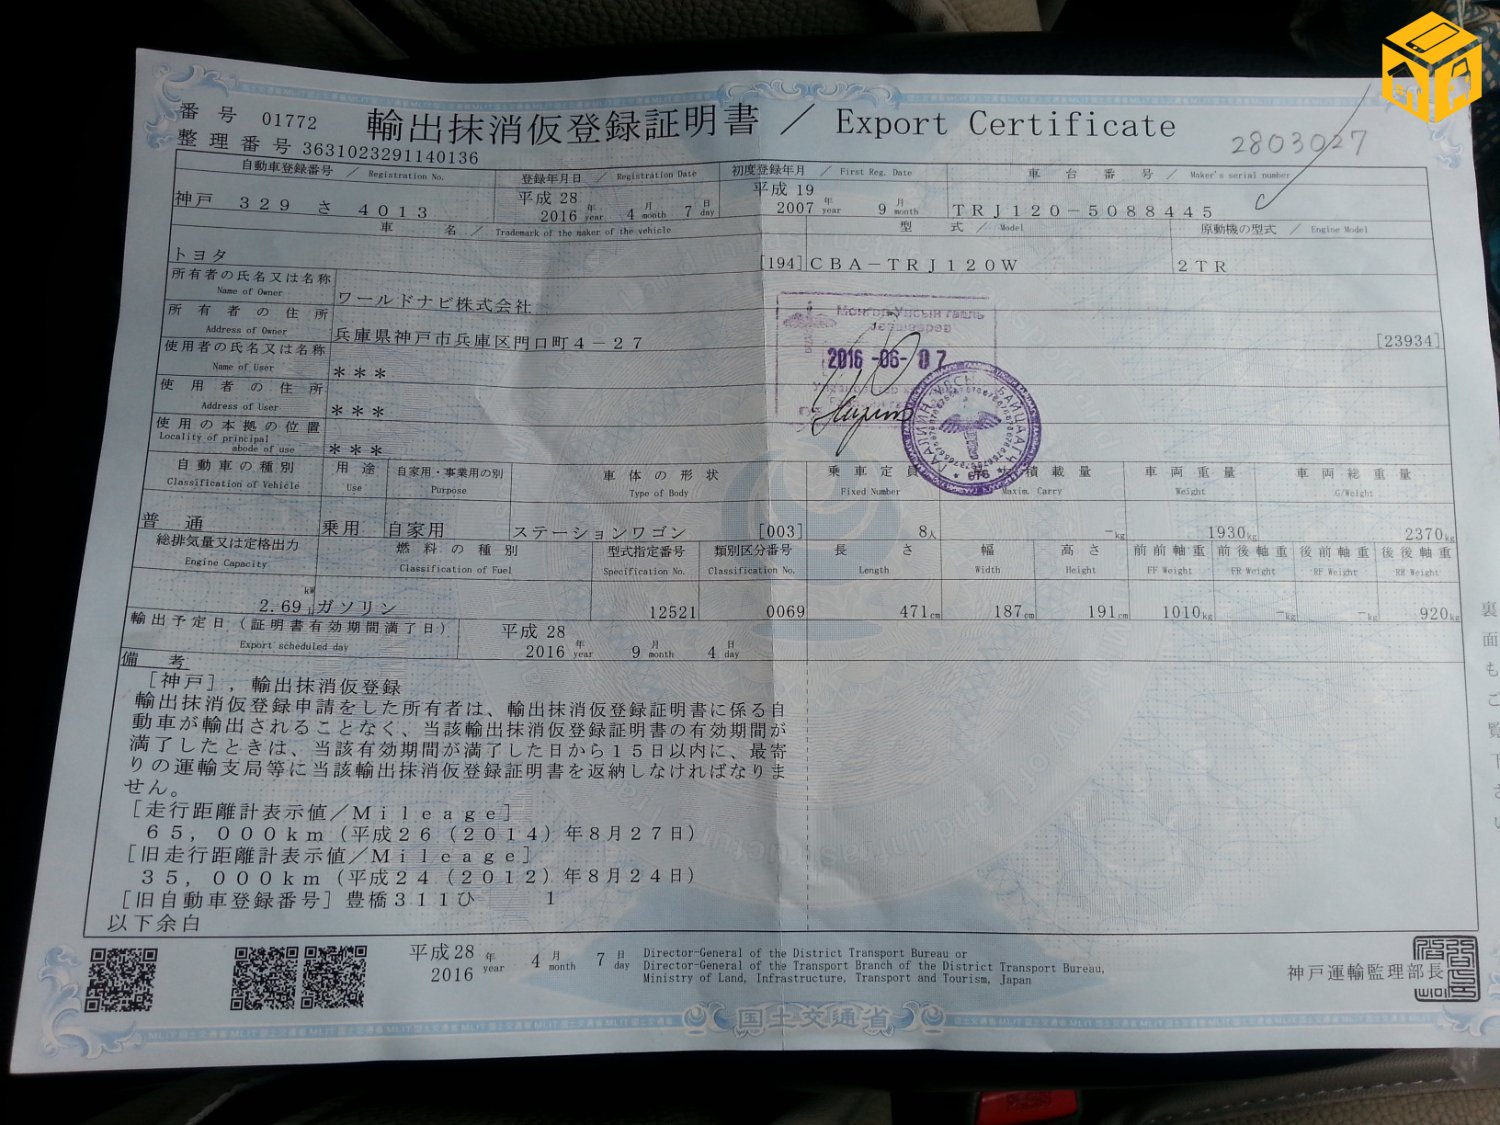 番号 01772 輸出抹消仮登録証明書 / Export Certificate 2803027
整理番号 3631023291140136
自動車登録番号 / Registration No. 登録年月日 / Registration Date 初度登録年月 / First Reg. Date 車台番号 / Maker's serial number
神戸 329 さ 4013 平成28 2016 年 year 4 月 month 7 日 day 平成19 2007 年 year 9 月 month TRJ120-5088445
車名 / Trademark of the maker of the vehicle 型式 / Model 原動機の型式 / Engine Model
トヨタ [194] CBA-TRJ120W 2TR
所有者の氏名又は名称 Name of Owner ワールドナビ株式会社
所有者の住所 Address of Owner 兵庫県神戸市兵庫区門口町4-27 [23934]
使用者の氏名又は名称 Name of User ***
使用者の住所 Address of User ***
使用の本拠の位置 Locality of principal abode of use ***
2016-06-07
自動車の種別 用途 自家用・事業用の別 車体の形状 乗車定員 積載量 車両重量 車両総重量
Classification of Vehicle Use Purpose Type of Body Fixed Number Maxim. Carry Weight G/Weight
普通 乗用 自家用 ステーションワゴン [003] 8人 -kg 1930kg 2370kg
総排気量又は定格出力 燃料の種別 型式指定番号 類別区分番号 長さ 幅 高さ 前前軸重 前後軸重 後前軸重 後後軸重
Engine Capacity Classification of Fuel Specification No. Classification No. Length Width Height FF Weight FR Weight RF Weight RR Weight
kW
2.69 ガソリン 12521 0069 471cm 187cm 191cm 1010kg -kg -kg 920kg
輸出予定日(証明書有効期間満了日) 平成28
Export scheduled day 2016 年 year 9 月 month 4 日 day
備考
[神戸], 輸出抹消仮登録
輸出抹消仮登録申請をした所有者は、輸出抹消仮登録証明書に係る自
動車が輸出されることなく、当該輸出抹消仮登録証明書の有効期間が
満了したときは、当該有効期間が満了した日から15日以内に、最寄
りの運輸支局等に当該輸出抹消仮登録証明書を返納しなければなりま
せん。
[走行距離計表示値/Mileage]
65,000km(平成26(2014)年8月27日)
[旧走行距離計表示値/Mileage]
35,000km(平成24(2012)年8月24日)
[旧自動車登録番号]豊橋311ひ 1
以下余白
平成28 年 4 月 7 日 Director-General of the District Transport Bureau or
2016 year month day Director-General of the Transport Branch of the District Transport Bureau,
Ministry of Land, Infrastructure, Transport and Tourism, Japan
神戸運輸監理部長
国土交通省